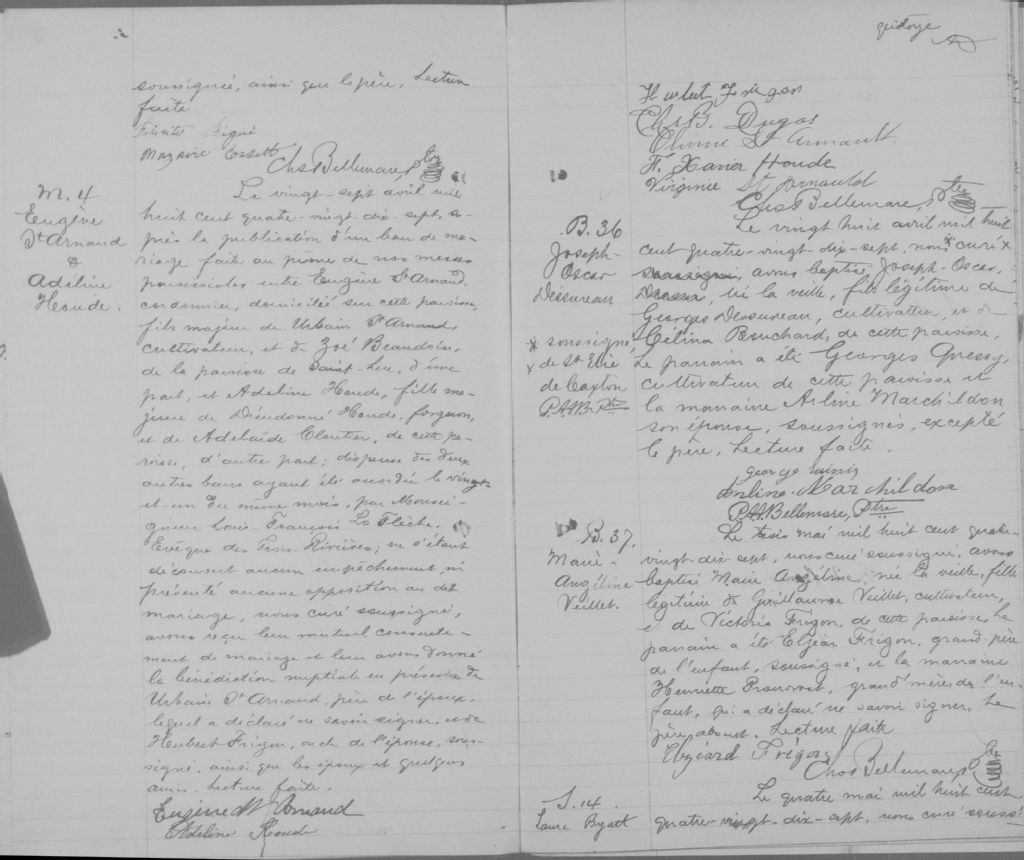 soussignée, ainsi que le père. Lecture
faite
Chs Bellemare, Ptre
M. 4
Eugène
St Arnaud
&
Adéline
Houde.
Le vingt-sept avril mil
huit cent quatre-vingt-dix-sept, a-
près la publication d'un ban de ma-
riage faite au prône de nos messes
paroissiales entre Eugène St Arnaud,
cordonnier, domicilié sur cette paroisse,
fils majeur de Urbain St Arnaud,
cultivateur, et de Zoé Beaudoin,
de la paroisse de Saint-Luc, d'une
part, et Adeline Houde, fille ma-
jeure de Dieudonné Houde, forgeron,
et de Adelaïde Cloutier, de cette pa-
roisse, d'autre part; dispense des deux
autres bans ayant été accordée le vingt-
et-un du même mois, par Monsei-
gneur Louis-François La Flèche,
Evêque des Trois-Rivières; ne s'étant
découvert aucun empêchement, ni
présenté aucune opposition au dit
mariage, nous curé soussigné,
avons reçu leur mutuel consente-
ment de mariage et leur avons donné
la bénédiction nuptiale en présence de
Urbain St Arnaud, père de l'époux,
lequel a déclaré ne savoir signer, et de
Heubert Frigon, oncle de l'épouse, sous-
signé, ainsi que les époux et quelques
amis. Lecture faite.
Eugène St Arnaud
Adéline Houde
Hubert Frigon
Chs B. Dugas
St Arnault
F. Xavier Houde
Virginie St Arnauld
Chs Bellemare, Ptre
B. 36
Joseph-
Oscar
Désureau
x soussigné
x de St Elie
de Caxton
P.A.A.B. Ptre
Le vingt huit avril mil huit
cent quatre-vingt-dix-sept, nous x curé x
soussigné, avons baptisé, Joseph-Oscar,
né la veille, fils légitime de
Georges Dessureau, cultivateur, et de
Célina Bouchard, de cette paroisse.
Le parrain a été Georges Quessy,
cultivateur de cette paroisse et
la marraine Arline Marchildon
son épouse, soussignés, excepté
le père. Lecture faite.
Arline Marchildon
P.A.A. Bellemare, Ptre
B. 37.
Marie-
Angéline
Veillet.
Le trois mai mil huit cent quatre-
vingt-dix-sept, nous curé soussigné, avons
baptisé Marie Angéline, née la veille, fille
légitime de Guillaume Veillet, cultivateur,
et de Victoria Frigon, de cette paroisse. Le
parrain a été Elzéar Frigon, grand-père
de l'enfant, soussigné, et la marraine
Henriette Pronovost, grand'mère de l'en-
fant, qui a déclaré ne savoir signer. Le
père absent. Lecture faite
Elzéard Frigon
Chs Bellemare, Ptre
S. 14.
Laura
Le quatre mai mil huit cent
quatre-vingt-dix-sept, nous curé soussi-